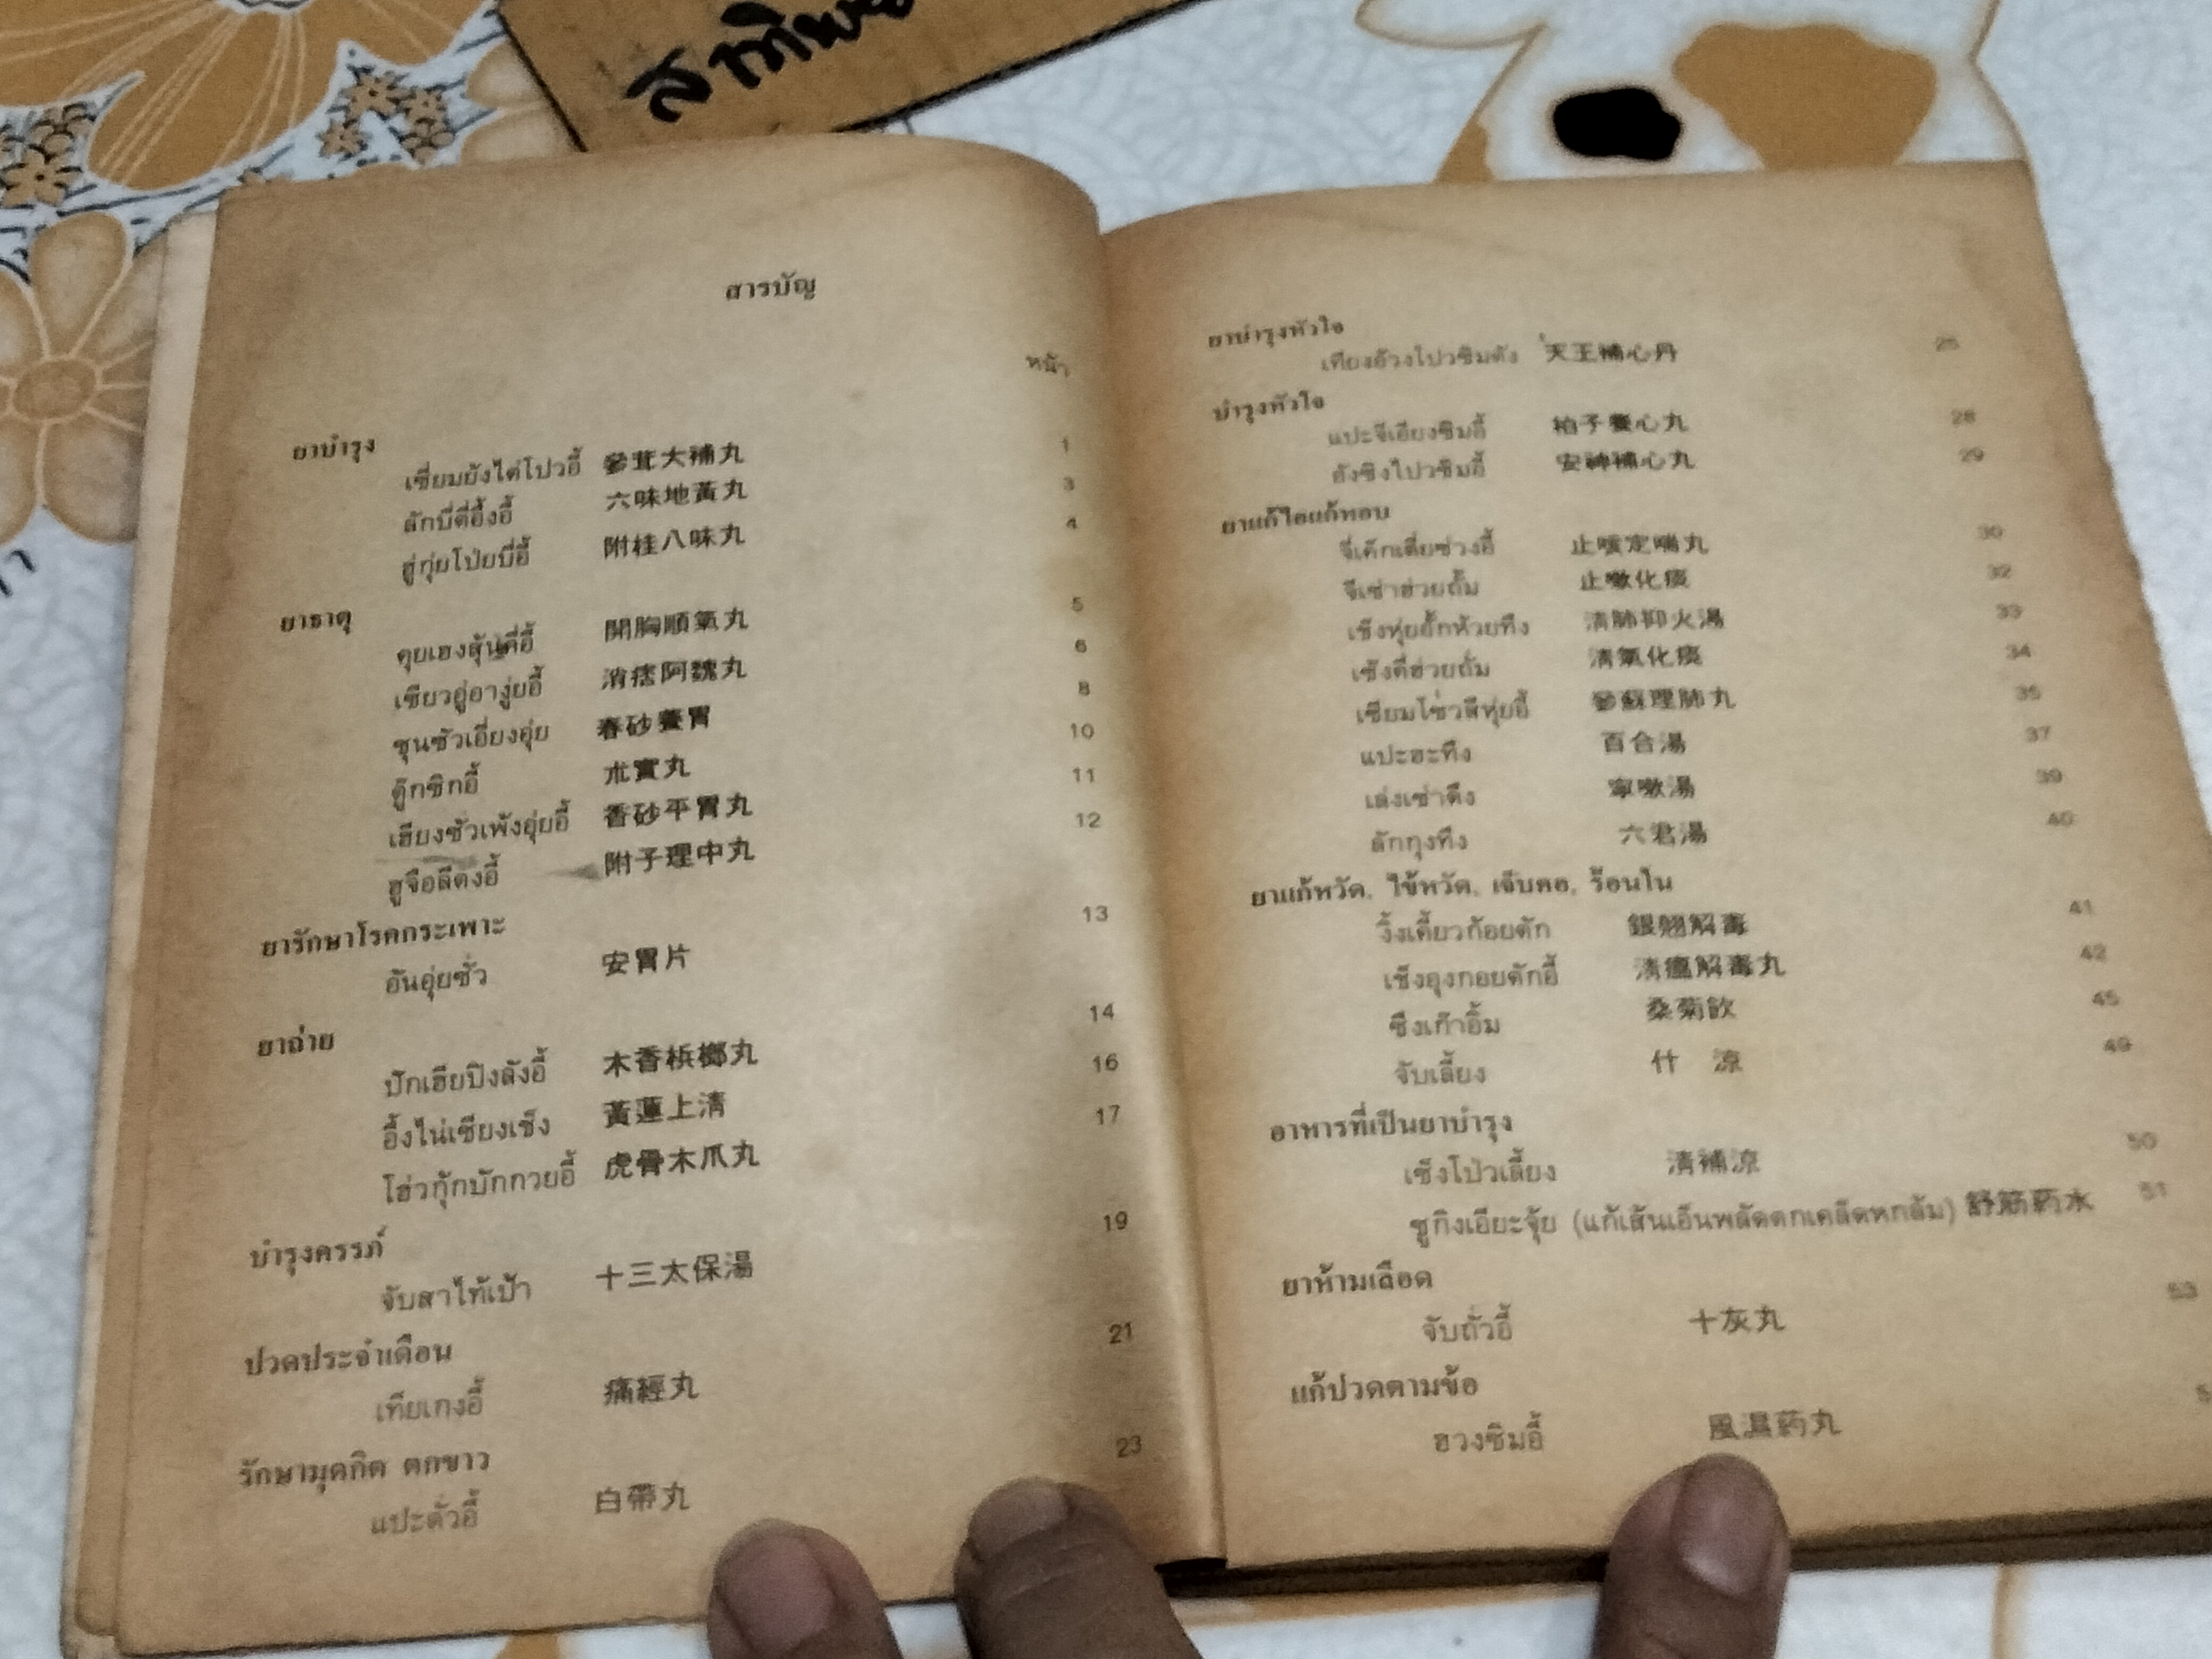 สารบัญ
หน้า
ยาบำรุง
เซี่ยมยังไต่โปวอี้ 參茸大補丸 1
ลักบี่ตี่อึ้งอี้ 六味地黃丸 3
ฮู่กุ่ยโป่ยบี่อี้ 附桂八味丸 4
ยาธาตุ
คุยเฮงสุ้นคี่อี้ 開胸順氣丸 5
เซียวฮู่อางู่ยอี้ 消痞阿魏丸 6
ชุนซัวเอี่ยงอุ่ย 春砂養胃 8
ตู๊กซิกอี้ 朮實丸 10
เฮียงซัวเพ้งอุ่ยอี้ 香砂平胃丸 11
ฮูจือลีตงอี้ 附子理中丸 12
ยารักษาโรคกระเพาะ
อันอุ่ยซั่ว 安胃片 13
ยาถ่าย
บักเฮียปิงลังอี้ 木香梹榔丸 14
อึ้งไน่เซียงเช็ง 黃蓮上清 16
โฮ่วกุ้กบักกวยอี้ 虎骨木爪丸 17
บำรุงครรภ์
จับสาไท้เป้า 十三太保湯 19
ปวดประจำเดือน
เทียเกงอี้ 痛經丸 21
รักษามุตกิด ตกขาว
แปะตั่วอี้ 白帶丸 23
ยาบำรุงหัวใจ
เทียงอ้วงโปวซิมตัง 天王補心丹 25
บำรุงหัวใจ
แปะจีเอียงซิมอี้ 柏子養心丸 28
อังซิงโปวซิมอี้ 安神補心丸 29
ยาแก้ไอแก้หอบ
จี่เค๊กเตี่ยช่วงอี้ 止咳定喘丸 30
จี่เซ่าฮ่วยถั้ม 止嗽化痰 32
เช็งหุ่ยยั้กห้วยทึง 清肺抑火湯 33
เช็งคี่ฮ่วยถั่ม 清氣化痰 34
เซียมโซ่วลีหุ่ยอี้ 參蘇理肺丸 35
แปะฮะทึง 百合湯 37
เล่งเซ่าตึง 寧嗽湯 39
ลักกุงทึง 六君湯 40
ยาแก้หวัด, ไข้หวัด, เจ็บคอ, ร้อนใน
งิ้งเคี้ยวก้อยตัก 銀翹解毒 41
เช็งอุงกอยตักอี้ 清瘟解毒丸 42
ซึงเก๊าอิ้ม 桑菊飲 45
จับเลี้ยง 什 凉 49
อาหารที่เป็นยาบำรุง
เช็งโป่วเลี้ยง 清補凉 50
ซูกิงเอียะจุ้ย (แก้เส้นเอ็นพลัดตกเคล็ดหกล้ม) 舒筋药水 51
ยาห้ามเลือด
จับถั่วอี้ 十灰丸 53
แก้ปวดตามข้อ
ฮวงซิมอี้ 風濕药丸